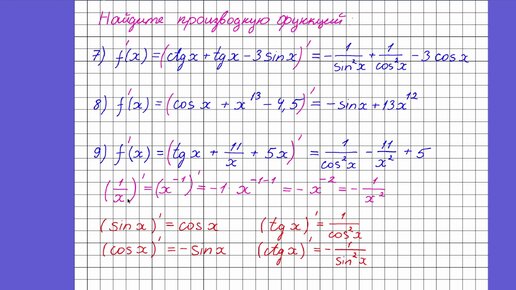 Найдите производную функций
7) f'(x) = (ctgx + tgx - 3sinx)' = -1/sin²x + 1/cos²x - 3cosx
8) f'(x) = (cosx + x¹³ - 4,5)' = -sinx + 13x¹²
9) f'(x) = (tgx + 11/x + 5x)' = 1/cos²x - 11/x² + 5
(1/x)' = (x⁻¹)' = -1 x⁻¹⁻¹ = -x⁻² = -1/x²
(sinx)' = cosx (tgx)' = 1/cos²x
(cosx)' = -sinx (ctgx)' = -1/sin²x